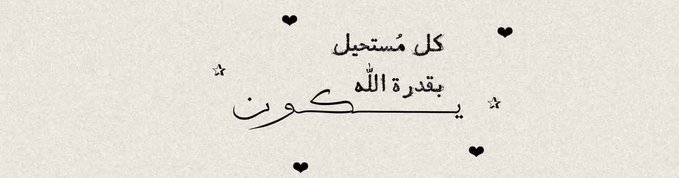 كل مُستحيل
بقدرة الله
يكون